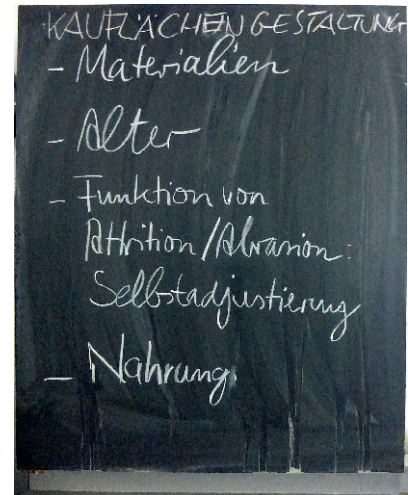 KAUFLÄCHENGESTALTUNG
- Materialien
- Alter
- Funktion von
Attrition/Abrasion:
Selbstadjustierung
- Nahrung